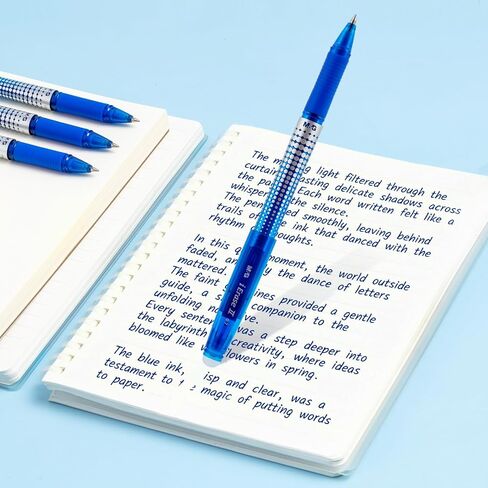 The light filtered through the
delicate shadows across
the Each word written felt like a
the silence.
The smoothly, leaving behind
trails ink that danced with the
rhythm
In this moment, the world outside
faded, the dance of letters
mattered.
The faint provided a gentle
guide, a companion to the
unfolding
Every was a step deeper into
the labyrinth creativity, where ideas
bloomed like in spring.
The blue ink, and clear, was a
testament to magic of putting words
to paper.
M&G
M&G iErase II